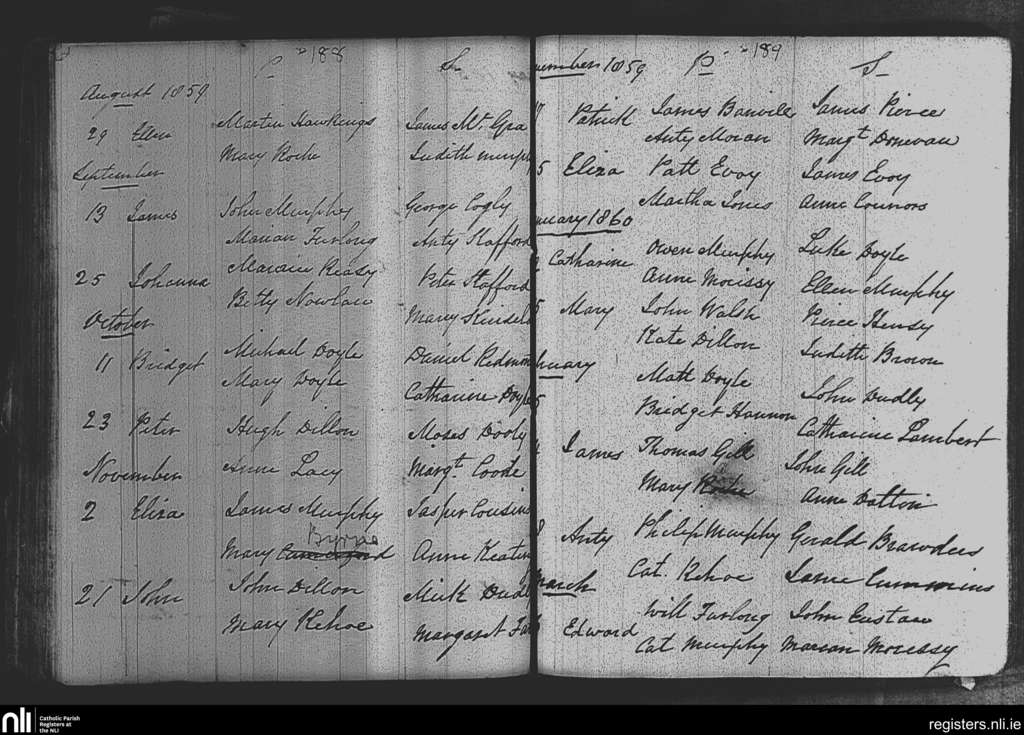 188
P S
August 1859
29 Ellen Martin Hawkings James Mt. Gra
Mary Roche Judith murph
September
13 James John Murphy George Cogly
Marian Furlong Anty Stafford
25 Johanna Reasy Peter Stafford
Betty Nowlan Mary Kinsela
October
11 Bridget Michael Doyle Daniel Redmon
Mary Doyle Catharine Doyle
23 Peter Hugh Dillon Moses Dooly
Anne Lacy Margt. Coote
November
2 Eliza James Murphy Jasper Cousins
Byrne
Mary Anne Keatin
21 John John Dillon Mick Dudl
Mary Kehoe Margaret
189
vember 1859 P S
Patrick James Banville James Pierce
Anty Moran Margt Donevan
5 Eliza Patt Evoy James Evoy
Martha Jones Anne Connors
nuary 1860
Catharine Owen Murphy Luke Doyle
Anne Morissy Ellen Murphy
5 Mary John Walsh Pierce Hensy
Kate Dillon Judith Brown
bruary
Matt Doyle John Dudly
Bridget Hannon Catharine Lambert
James Thomas Gill John Gill
Mary Roche Anne Dalton
8 Anty Philip Murphy Gerald Brawders
Cat. Kehoe Jane Cummins
March
Edward Will Furlong John Eustace
Cat Murphy Marian Morissy
nli
Catholic Parish
Registers at
the NLI
registers.nli.ie